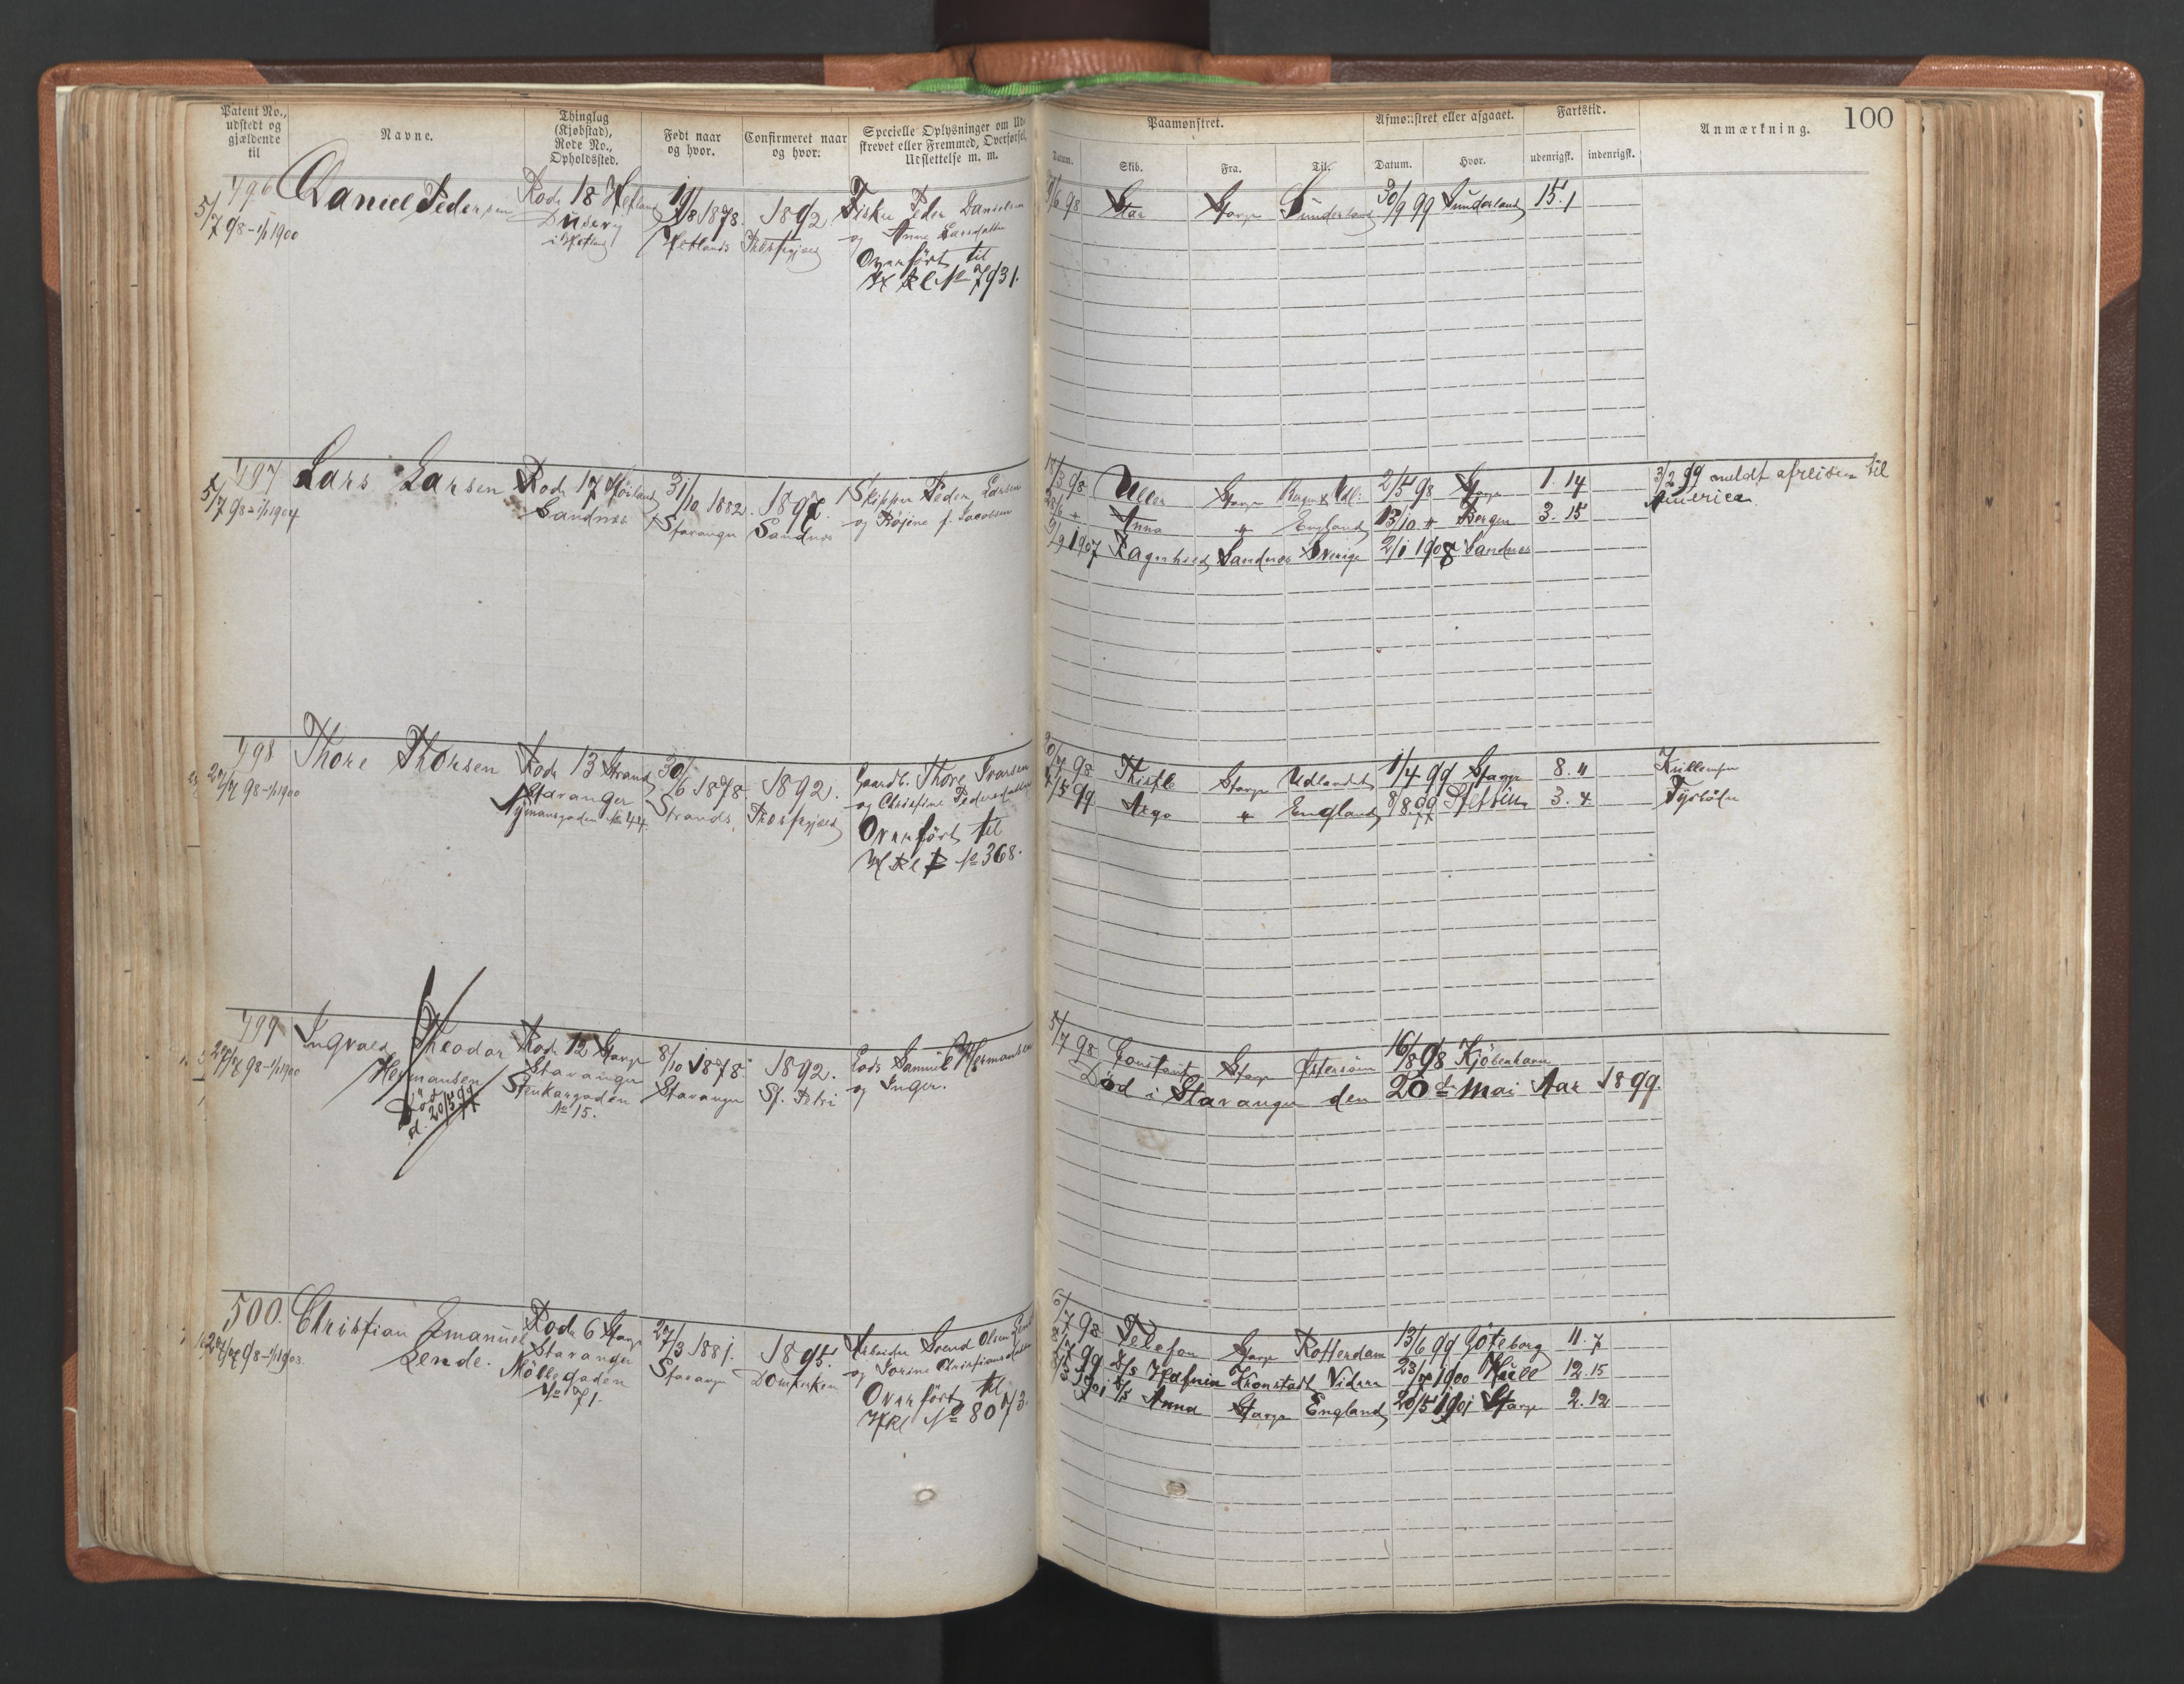 Patent No., udstedt og gjældende til
Navne.
Thinglag (Kjøbstad), Rode No., Opholdssted.
Født naar og hvor.
Confirmeret naar og hvor.
Specielle Oplysninger om Ud-
skrevet eller Fremmed, Overførsel,
Udslettelse m. m.
Paamønstret.
Afmønstret eller afgaaet.
Fartstid.
Anmærkning.
100
Datum.
Skib.
Fra.
Til.
Datum.
Hvor.
udenrigsk.
indenrigsk.
496
5/7 98 - 1/1 1900
Daniel Pedersen
Rode 18 Hetland
i Hetland
19/8 1878.
Hetlands
1892.
Præstegjeld
Fisker Peder Danielsen
og Anne Larsdatter
Overført til
H Rl No 7931.
9/6 98 Star Stavgr Sunderland 30/9 99 Sunderland 15. 1
497
5/7 98 - 1/1 1904
Lars Larsen
Rode 17 Høiland
Sandnes
31/10 1882.
Stavanger
1897.
Sandnes
Skipper Peder Larsen
og Frøjine f. Jacobsen
18/3 98 Uller Stavgr 2/5 98 Stavgr 1. 14
28/6 " Anna " England 13/10 " Bergen 3. 15
9/9 1907 Ragnhild Sandnes Sverige 2/1 1908 Sandnes
3/2 99 meldt afreisen til
America
498
27/7 98 - 1/1 1900
Thore Thorsen
Rode 13 Strand
Stavanger
Nymansgaden No 44.
30/6 1878.
Strands
1892.
Præstegjeld
Gaardb. Thore Ivarsen
og Christine Pedersdatter
Overført til
H Rl No 368.
20/7 98 Thistle Stavgr Udlandet 1/4 99 Stavgr 8. "
4/5 99 Argo " England 8/8 99 Stettin 3. 4
499
27/7 98 - 1/1 1900
Ingvald Theodor
Hermansen
Død
d. 20/5 99
Rode 12 Stavgr
Stavanger
Stenkargaden
No 15.
8/10 1878.
Stavanger
1892.
St. Petri
Lods Samuel Hermansen
og Inger.
5/7 98 Constant Stavgr Østersøen 16/8 98 Kjöbenhavn
Död i Stavanger den 20de Mai Aar 1899.
500.
27/7 98 - 1/1 1903.
Christian Emanuel
Lende.
Rode 6 Stavgr
Stavanger
Möllegaden
No 71.
27/3 1881.
Stavanger
1895.
Domkirken
Arbeider Svend Olsen Lende
og Sorine Christiansdatter
Overført til
H Rl No 8073.
6/7 98 Telefon Stavgr Rotterdam 13/6 99 Göteborg 11. 7
Hafnia Kronstadt Videre 23/7 1900 Hull 12. 15
1901 Anna Stavgr England 20/5 1901 Stavgr 2. 12